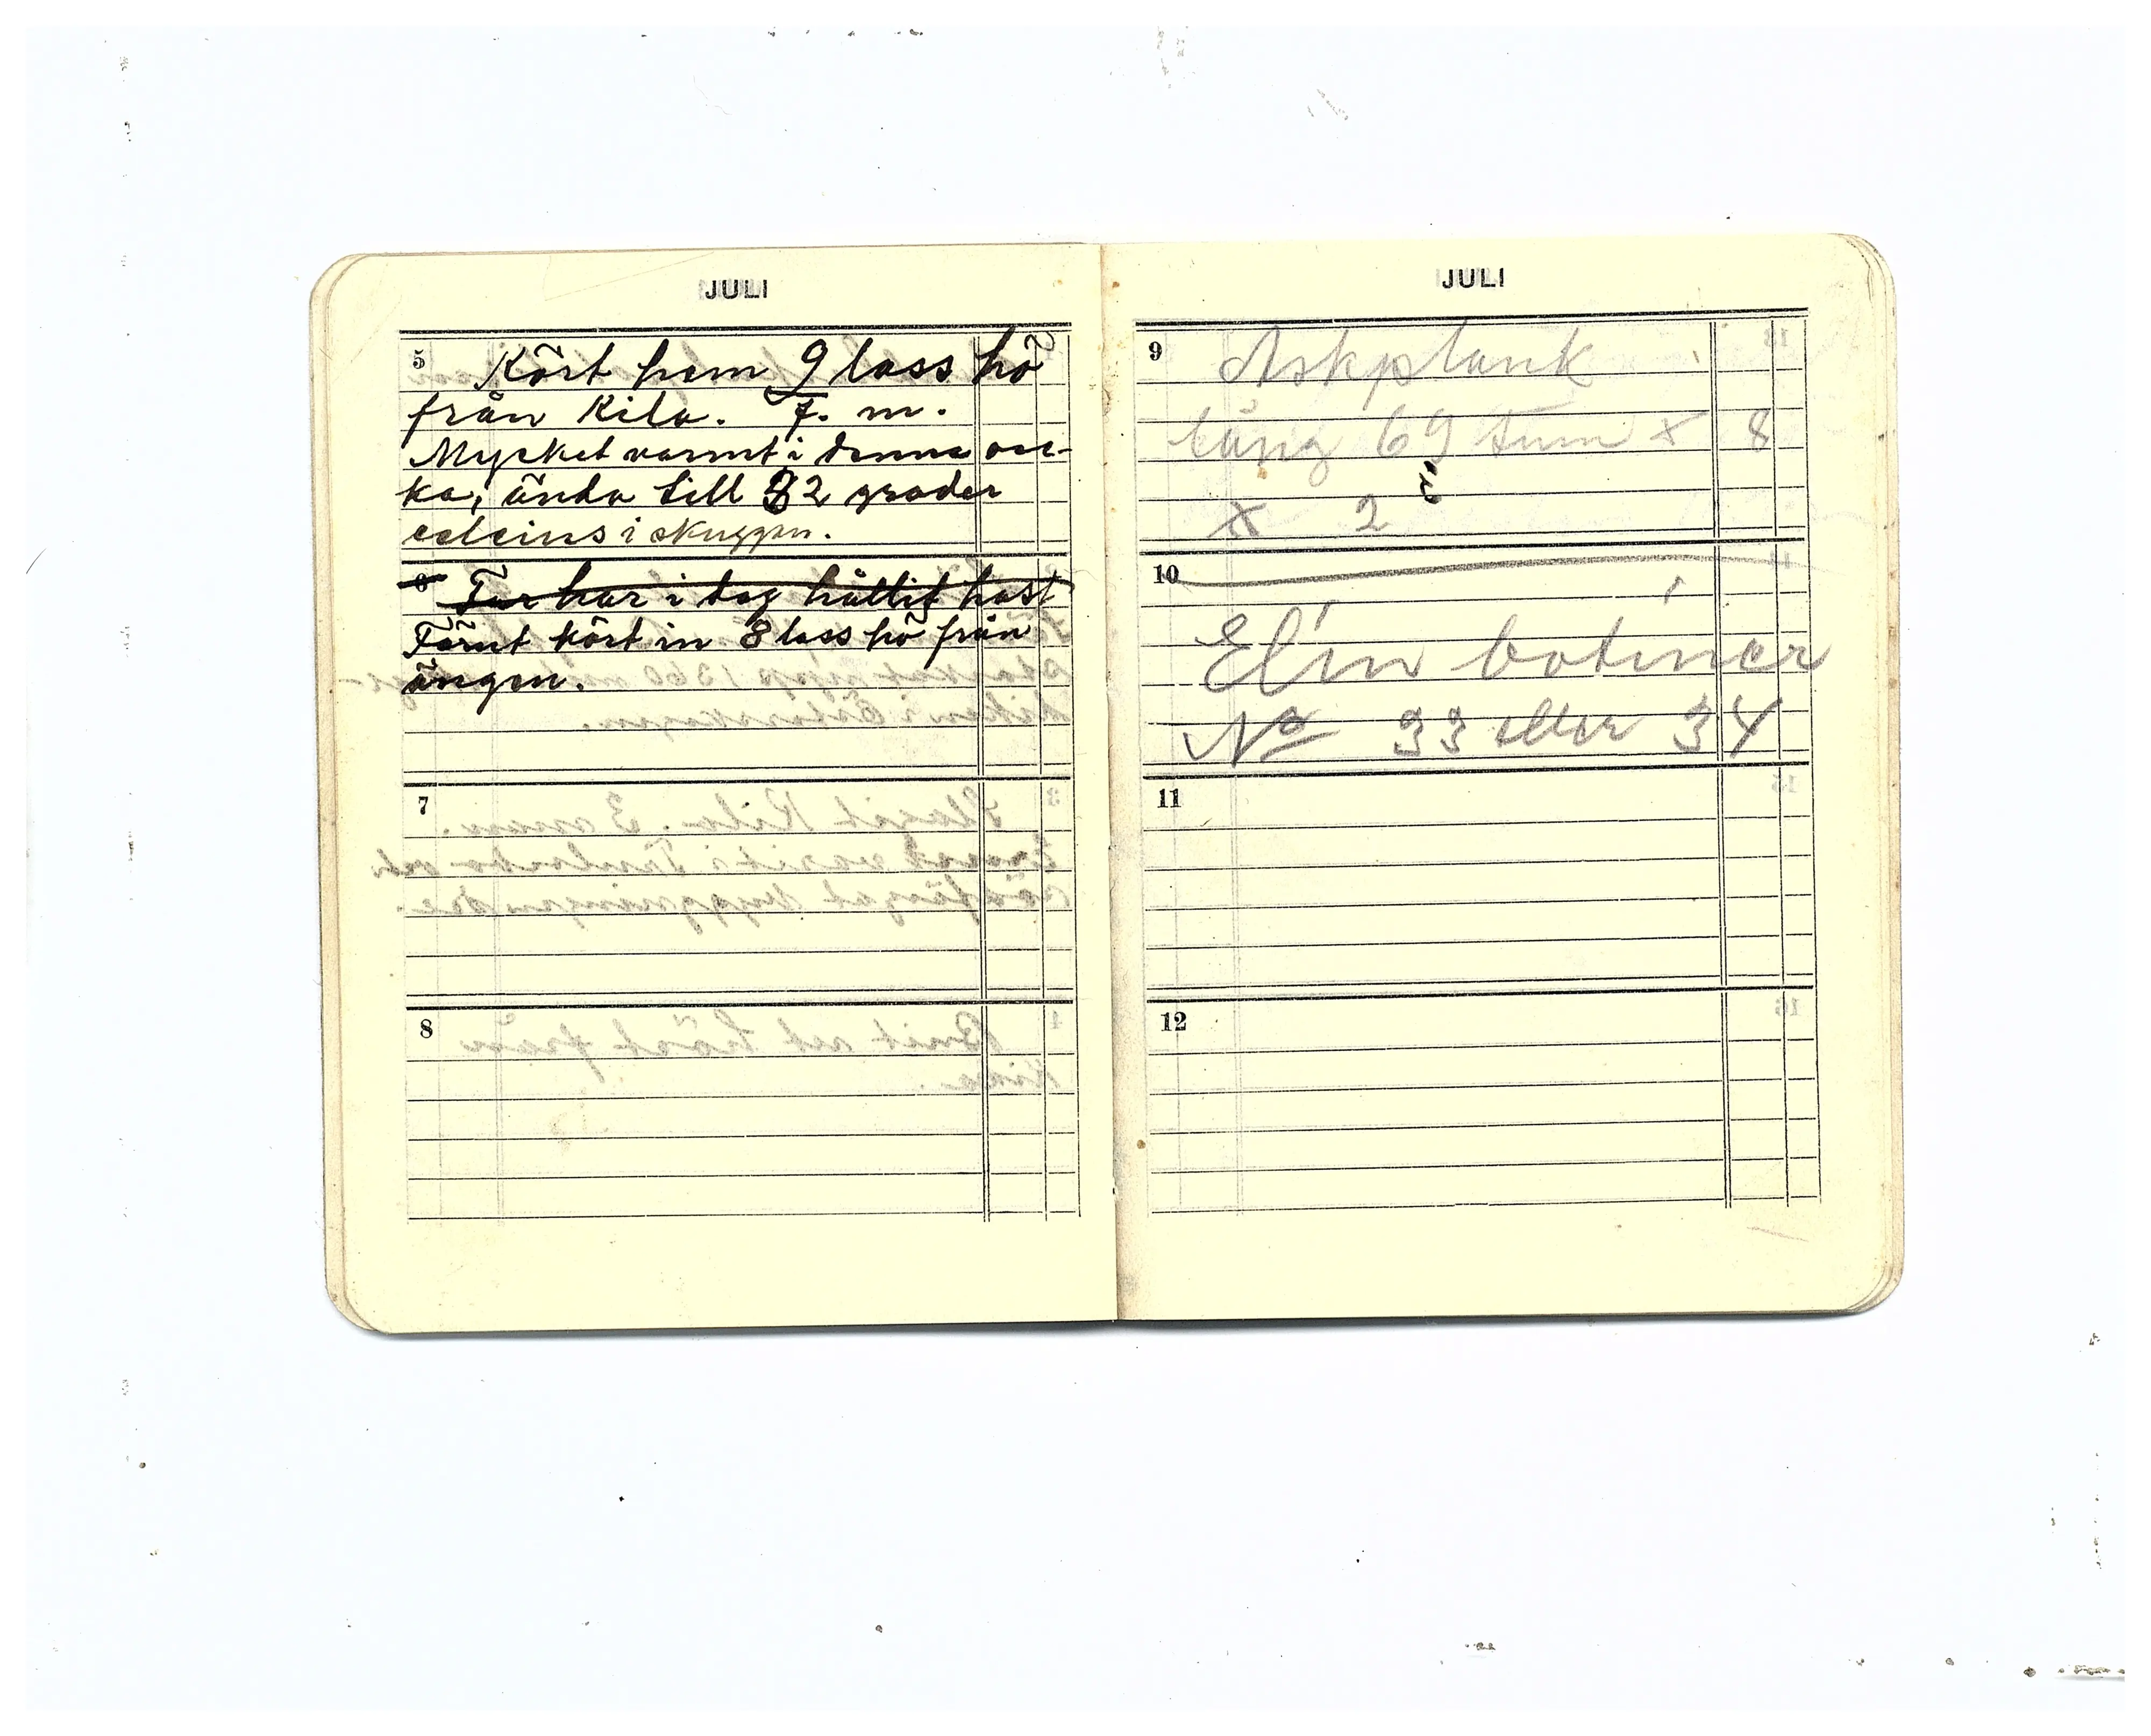 JULI
5 Kört hem 9 lass hö
från Kila. F. m.
Mycket varmt i denna vec-
ka, ända till 32 grader
celcius i skuggan.
6 Far har i dag hållit hast
Förut kört in 8 lass hö från
ängen.
7
8
JULI
9 Askplank
lång 69 tum x 8
x 2
10
Elin botiner
No 33 eller 34
11
12